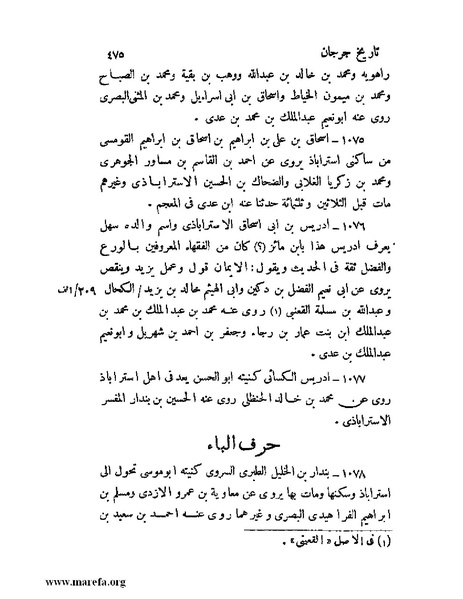 تاريخ جرجان ٤٧٥
راهويه ومحمد بن خالد بن عبدالله ووهب بن بقية ومحمد بن الصباح
ومحمد بن ميمون الخياط واسحاق بن ابى اسرايل ومحمد بن المثنى البصرى
روى عنه ابونعيم عبدالملك بن محمد بن عدى .
١٠٧٥ – اسحاق بن على بن ابراهيم بن اسحاق بن ابراهيم القومسى
من ساكنى استراباذ يروى عن احمد بن القاسم بن مساور الجوهرى
ومحمد بن زكريا الغلابى والضحاك بن الحسين الاستراباذى وغيرهم
مات قبل الثلاثين وثلثمائة حدثنا عنه ابن عدى فى المعجم .
١٠٧٦ – ادريس بن ابى اسحاق الاستراباذى واسم والده سهل
يعرف ادريس هذا بابن مائز (؟) كان من الفقهاء المعروفين بالورع
والفضل ثقة فى الحديث ويقول : الايمان قول وعمل يزيد وينقص
يروى عن ابى نعيم الفضل بن دكين وابى الهيثم خالد بن يزيد / الكحال ٢٠٩/الف
وعبدالله بن مسلمة القعنبى (١) روى عنه محمد بن عبدالملك بن محمد بن
عبدالملك ابن بنت عمار بن رجا. وجعفر بن احمد بن شهريل وابونعيم
عبدالملك بن عدى .
١٠٧٧ – ادريس الكسائى كنيته ابو الحسن يعد فى اهل استراباذ
روى عن محمد بن خالد الحنظلى روى عنه الحسين بن بندار المفسر
الاستراباذى .
حرف الباء
١٠٧٨ – بندار بن الخليل الطبرى السروى كنيته ابوموسى تحول الى
استراباذ وسكنها ومات بها يروى عن معاوية بن عمرو الازدى ومسلم بن
ابراهيم الفراهيدى البصرى وغيرهما روى عنه احمد بن سعيد بن
(١) فى الاصل «القعينى» .
www.marefa.org